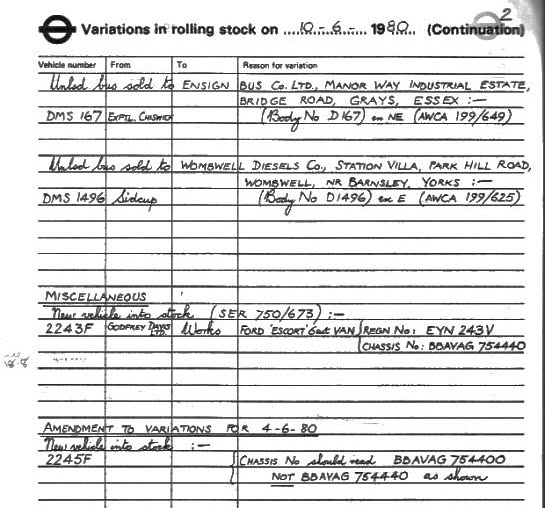 2
Variations in rolling stock on ....10-6-.... 1980.... (Continuation)
Vehicle number From To Reason for variation
Unlsd bus sold to ENSIGN BUS CO. LTD., MANOR WAY INDUSTRIAL ESTATE,
BRIDGE ROAD, GRAYS, ESSEX :—
DMS 167 EXPTL. CHISWICK (Body No D167) ex NE (AWCA 199/649)
Unlsd bus sold to WOMBWELL DIESELS CO., STATION VILLA, PARK HILL ROAD,
WOMBWELL, NR BARNSLEY, YORKS :—
DMS 1496 Sidcup (Body No D1496) ex E (AWCA 199/625)
MISCELLANEOUS
New vehicle into stock (SER 750/673) :—
2243F GODFREY DAVIS LTD. Works FORD 'ESCORT' 6cwt VAN REGN No: EYN 243V
CHASSIS No: BBAVAG 754440
AMENDMENT TO VARIATIONS FOR 4-6-80
New vehicle into stock :—
2245F CHASSIS No should read BBAVAG 754400
NOT BBAVAG 754440 as shown